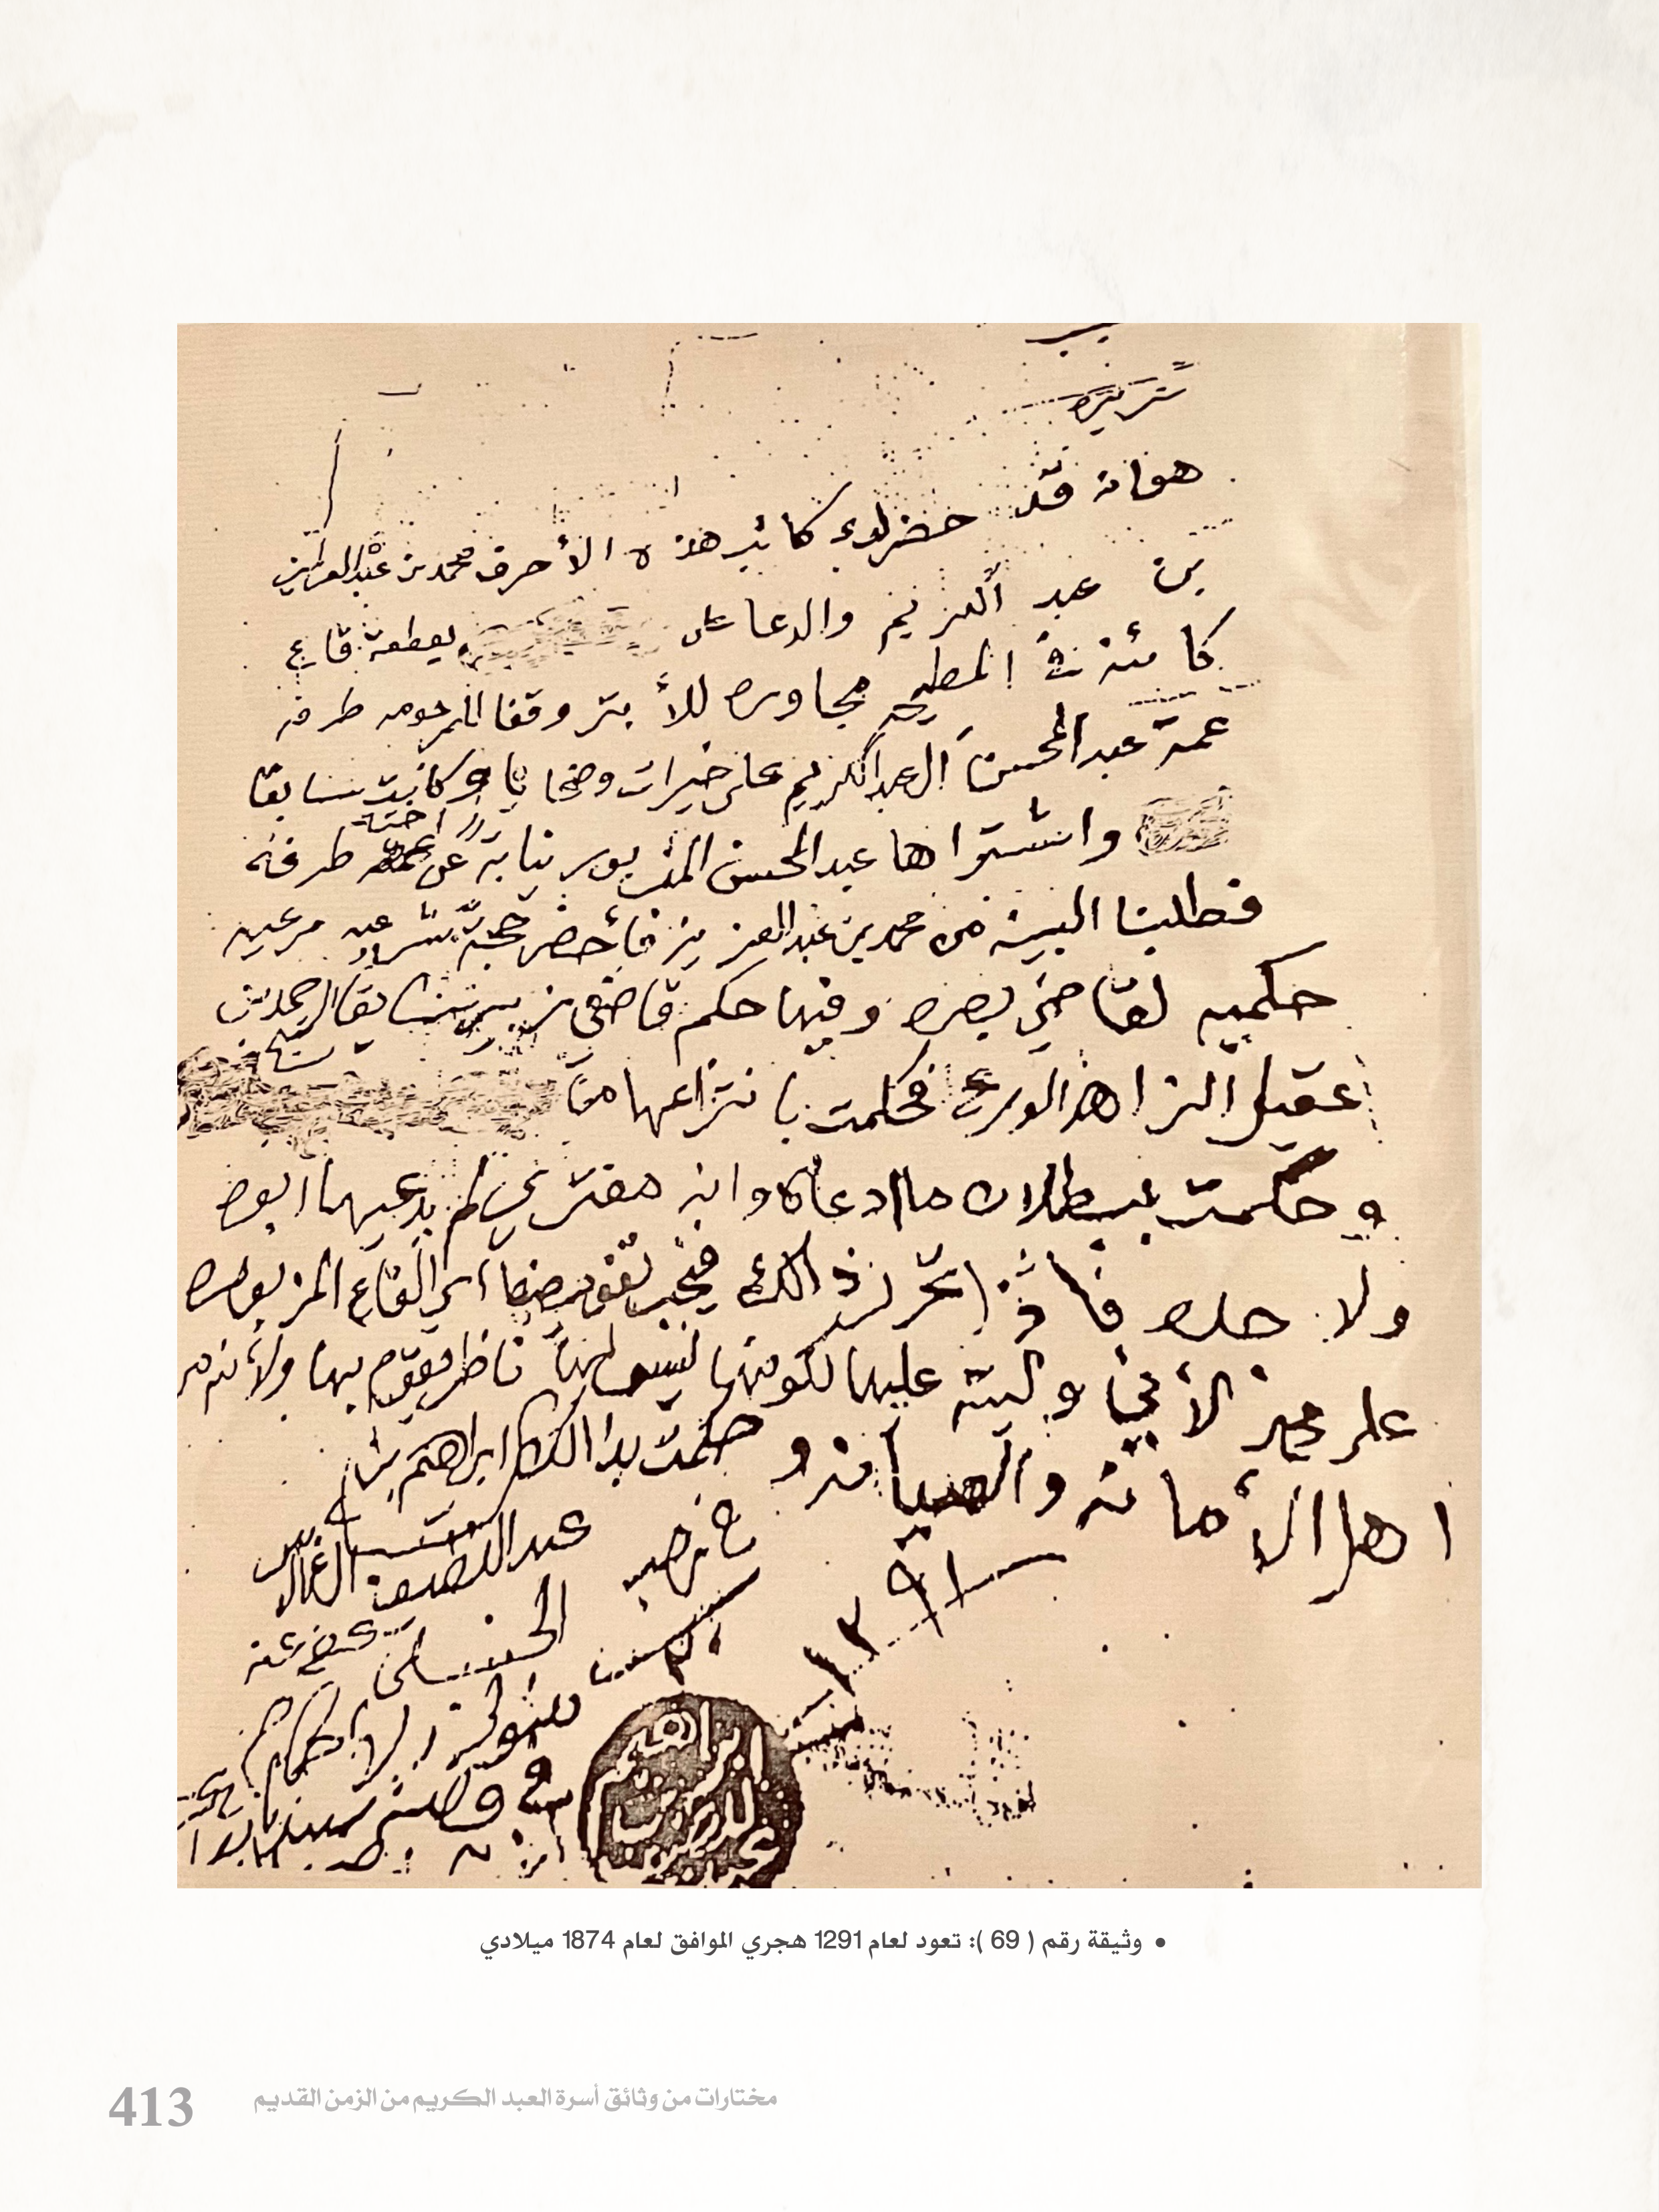 هو انه قد حضر لدي كاتب هذه الأحرف محمد بن عبد العزيز
بن عبد الكريم والدعا على بقطعة قاع
كائنة في المطيحه مجاوره للأبتر وقفا المرحومه طرفه
عمة عبد المحسن ال عبد الكريم على خيرات وضحايا وكانت سابقا
واشتراها عبد المحسن المزبور نيابة عن اخته طرفه
فطلبنا البينه من محمد بن عبد العزيز فأحضر حجة شرعيه مرعيه
حكميه لقاضي بصره وفيها حكم قاضي زبير سابقا الشيخ احمد بن
عقيل الزاهد الورع فحكمت بانتزاعها من
وحكمت ببطلان ما ادعاه وانه مفتري لم يدعيها ابوه
ولا جده فاذا تحرر ذالك فيجب تفويضها اي القاع المزبوره
على محمد لأني وليته عليها لكونها ليس لها ناظر يقوم بها ولأنه من
اهل الأمانه والصيانه و حكمت بذالك ابراهيم بن
عبد اللطيف ال غالب
الحنبلي عفي عنه
١٢٩١
متولي الاحكام
ابراهيم
• وثيقة رقم ( 69 ): تعود لعام 1291 هجري الموافق لعام 1874 ميلادي
مختارات من وثائق أسرة العبد الكريم من الزمن القديم
413